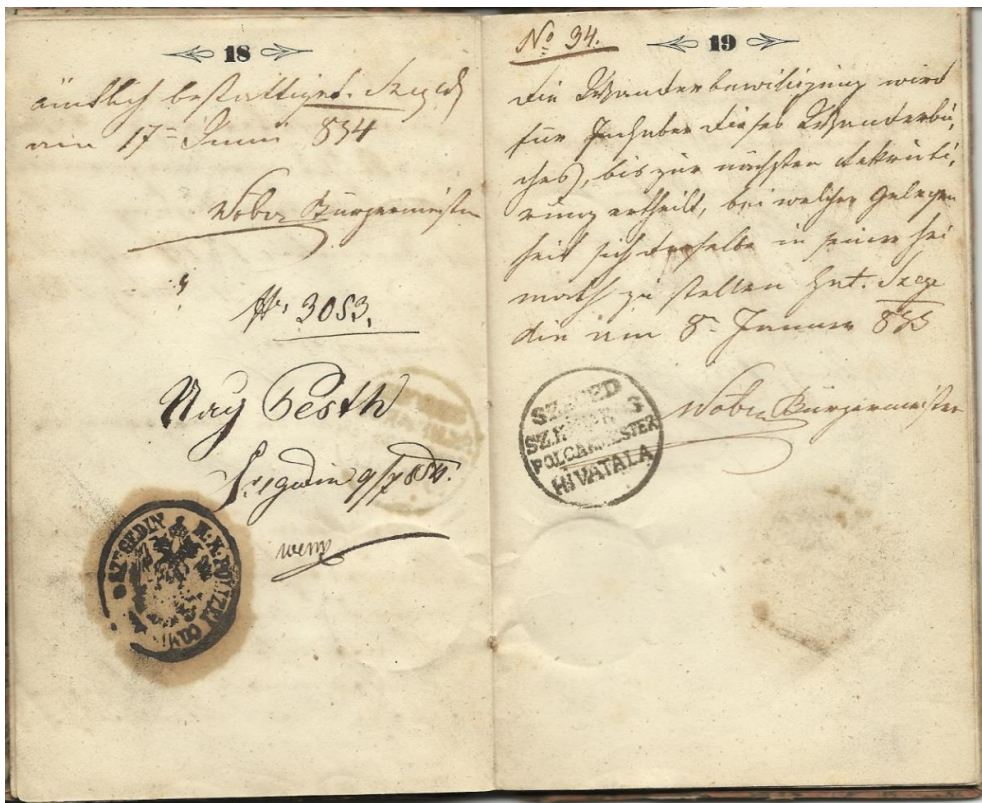 18
ämtlich bestättiget. Szeged
am 17= Juni 854
Bürgermeister
Nr. 3053.
Nach Pesth
Szegedin 9/7 854.
SZEGEDIN K.K. POLIZEI
No 34. 19
Die Wanderbewilligung wird
für Inhaber dieses Wanderbu,
ches, bis zur nächsten Rekruti,
rung ertheilt, bei welcher Gelegen
heit sich derselbe in seiner Hei
math zu stellen hat. Szege
din am 8= Januar 855
Bürgermeister
SZEGED
SZ. K.
POLGARMESTER
HIVATALA